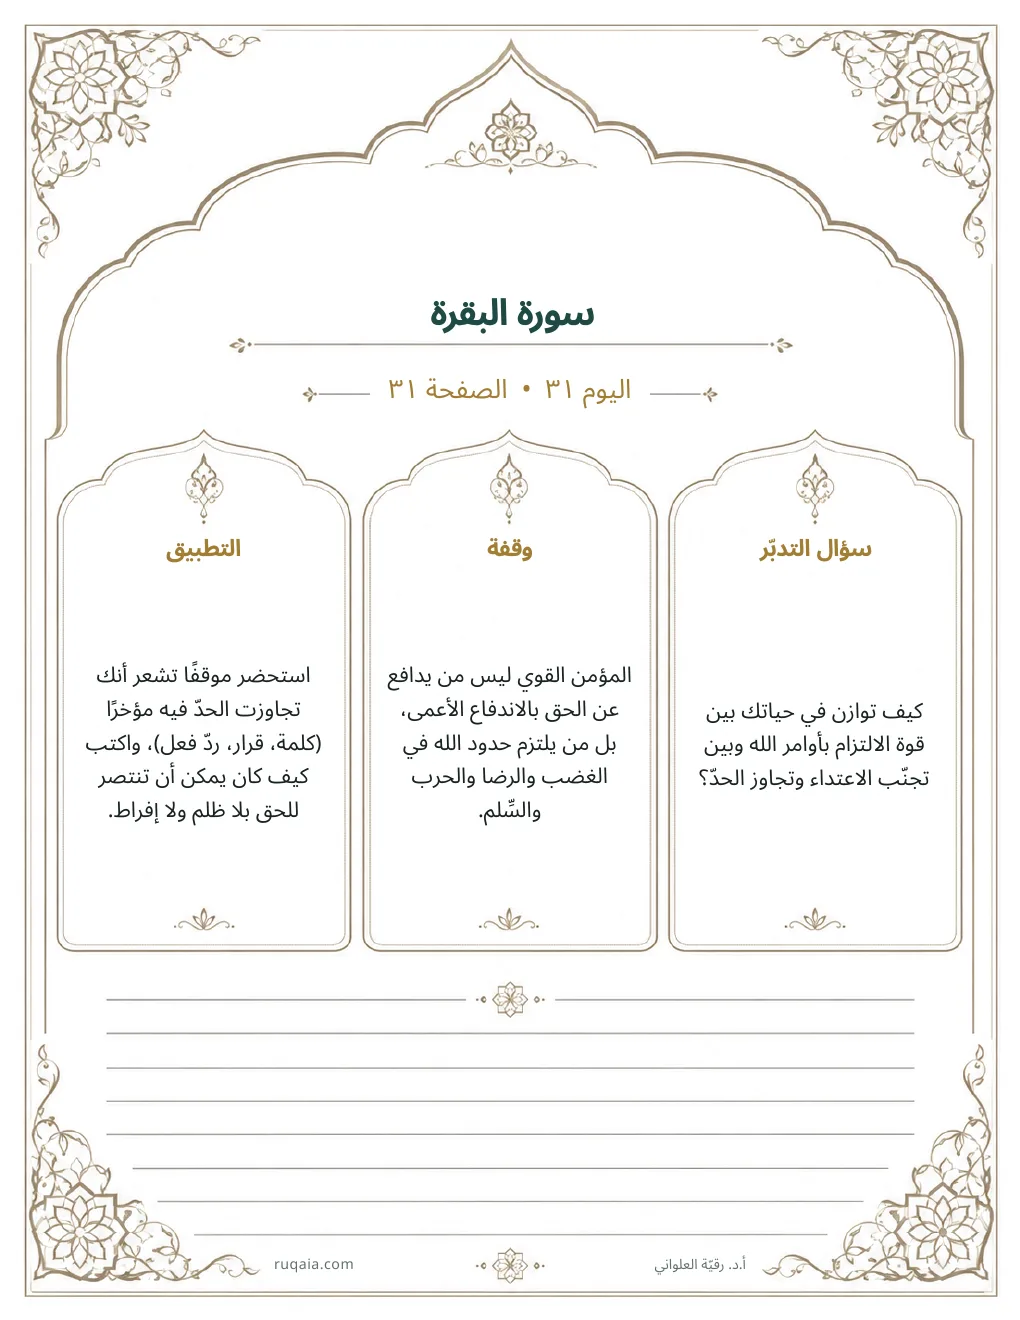 سورة البقرة
اليوم ٣١ • الصفحة ٣١
سؤال التدبّر
كيف توازن في حياتك بين
قوة الالتزام بأوامر الله وبين
تجنّب الاعتداء وتجاوز الحدّ؟
وقفة
المؤمن القوي ليس من يدافع
عن الحق بالاندفاع الأعمى،
بل من يلتزم حدود الله في
الغضب والرضا والحرب
والسِّلم.
التطبيق
استحضر موقفًا تشعر أنك
تجاوزت الحدّ فيه مؤخرًا
(كلمة، قرار، ردّ فعل)، واكتب
كيف كان يمكن أن تنتصر
للحق بلا ظلم ولا إفراط.
أ.د. رقيّة العلواني
ruqaia.com